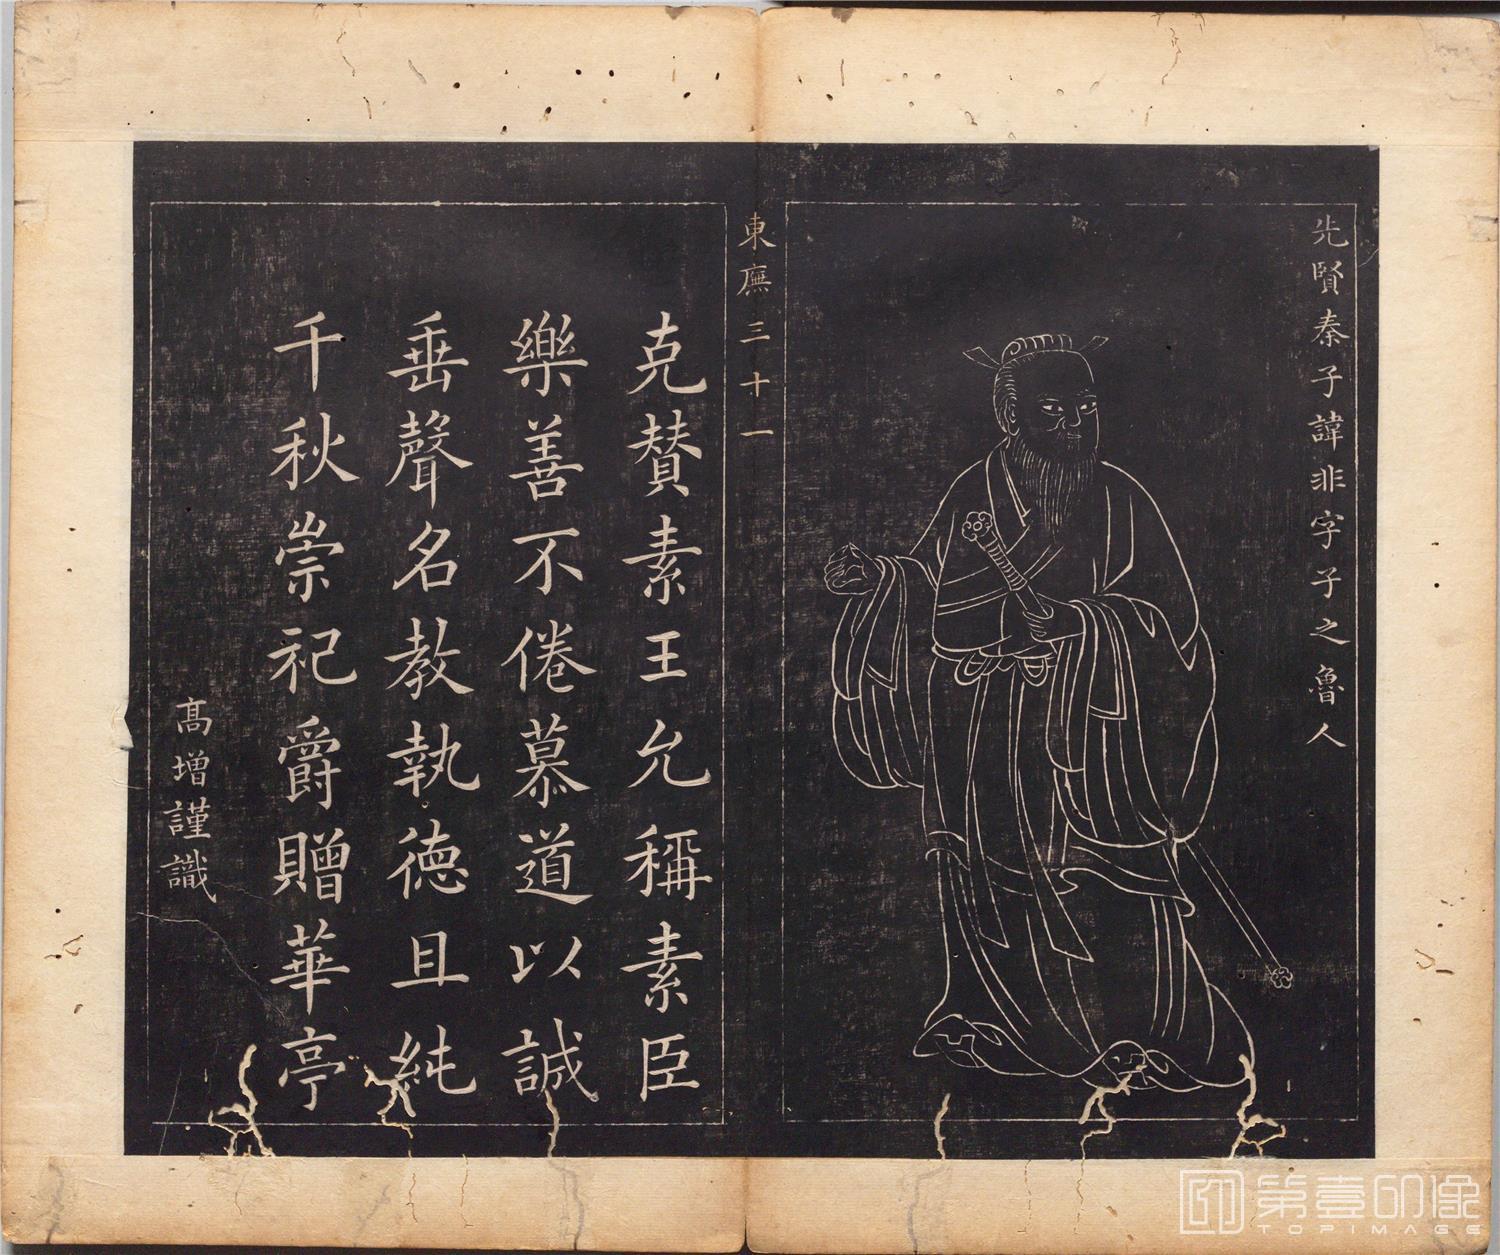 先賢秦子諱非字子之魯人
東廡三十一
克賛素王允稱素臣
樂善不倦慕道以誠
垂聲名教執德且純
千秋崇祀爵贈華亭
高增謹識
第壹印像
TOPIMAGE